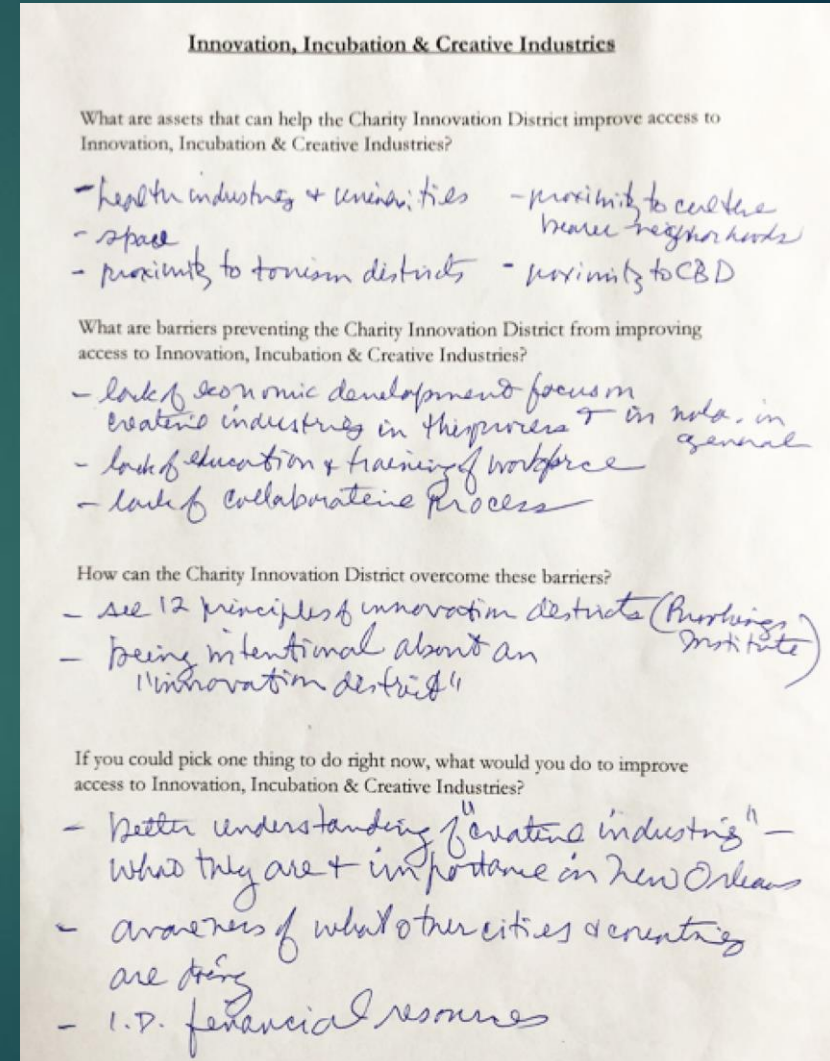 Innovation, Incubation & Creative Industries
What are assets that can help the Charity Innovation District improve access to
Innovation, Incubation & Creative Industries?
- health industries + universities
- space
- proximity to tourism districts
- proximity to culture
bearer neighborhoods
- proximity to CBD
What are barriers preventing the Charity Innovation District from improving
access to Innovation, Incubation & Creative Industries?
- lack of economic development focus on
creative industries in the process + in nola. in
general
- lack of education & training of workforce
- lack of collaborative process
How can the Charity Innovation District overcome these barriers?
- see 12 principles of innovation districts (Brookings
Institute)
- being intentional about an
"innovation district"
If you could pick one thing to do right now, what would you do to improve
access to Innovation, Incubation & Creative Industries?
- better understanding of "creative industries" -
what they are + importance in New Orleans
- awareness of what other cities & countries
are doing
- I.D. financial resources